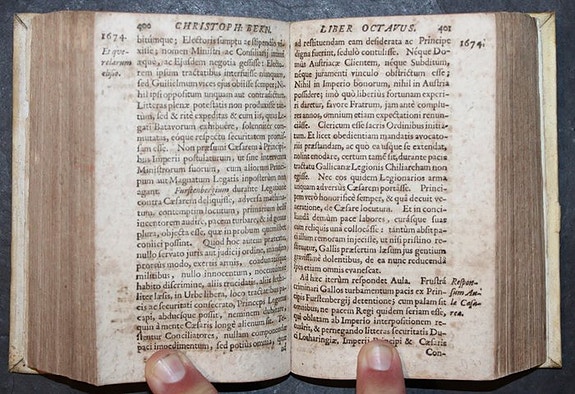 400 CHRISTOPH: BEEN.
1674.
Et querelarum
elusio.
bitumque; Electoris sumptu ac stipendio vixisse;
nomen Ministri ac Consiliarii
ac, ac Ejusdem negotia gessisse: Electorem
ipsum tractatibus interfuisse nunquam,
sed Guilielmum vices ejus obiisse semper; Nihil
ipsi oppositum unquam aut contradictum.
Litteras plenæ potestatis non produxisse tantum,
sed & ritè expeditas & cum iis, quas Legati
Batavorum exhibuere, solenniter commutatas,
eoque respectu securitatem promissam
esse. Non præsumi Cæsarem à Principibus
Imperii postulaturum, ut sine interventu
Ministrorum suorum, cum alioruni Principum
aut Magnatum Legatis in posterum
agant. Furstenbergium durante Legatione
contra Cæsarem deliquisse, adversa
tum, contemptim locutum, primarum belli
incentorem audire, pacem turbare, & id genus
plura, objecta esse, quæ in probum quemlibet
conjici possint. Quod hoc autem præter,
nullo servato juris aut judicii ordine,
prorsus modo, correis armis, coadunatoque
militibus, nullo innocentum, nocentum
habito discrimine, aliis trucidatis, aliis
liter læsis, in Urbe libera, loco tractatibus pacis
ac securitati consecrato, Principem Legatum
capi, abducique possit, neminem
quin à mente Cæsaris longè alienum sit.
stentur Conciliatores, nullam componendæ
paci impedimentum, sed potiùs omnia, quæ
ad
LIBER OCTAVUS. 401
1674.
ad restituendam eam desiderata ac Principe
digna fuerint, sedulò contulisse. Neque Domus
Austriacæ Clientem, neque Subditum,
neque juramenti vinculo obstrictum esse;
Nihil in Imperio bonorum, nihil in Austria
possidere; imò quò liberiùs fortunam experiri
daretur, favore Fratrum, jam antè complures
annos, omnium etiam expectationi renunciasse.
Clericum esse sacris Ordinibus initiatum.
Et licet obedientiam mandatis avocatoriis
præstandam, ac quò ea usque se extendat,
nolint enodare, certum tamé sit, durante pacis
tractatu Gallicanæ Legionis Chiliarcham non
egisse. Nec eos quidem Legionarios arma
unquam adversùs Cæsarem portasse. Principem
verò honorificè semper, & quâ decuit veneratione,
de Cæsare locutum. Et in conciliandâ
demùm pace labores, curásque suas
cum reliquis unà collocasse: tantùm abst pacillum
remoram injecisse, ut nisi pristino restituatur,
Gallis præsertim læsum jus gentium
graviter dolentibus, de ea nunc reducenda
spes etiam omnis evanescat.
Ad hæc iterùm respondet Aula. Frustrà
criminari Gallos turbamentum pacis ex Principis
Furstenbergij detentione; cum palam sit
omnibus, ne pacem Regi quidem seriam esse,
qui oblatam ab Imperio interpositionem
& pernegando litteras securitatis
Lotharingiæ, Imperii Principi & Cæsaris
Con-
Responsum Aulæ
Cæsarea.